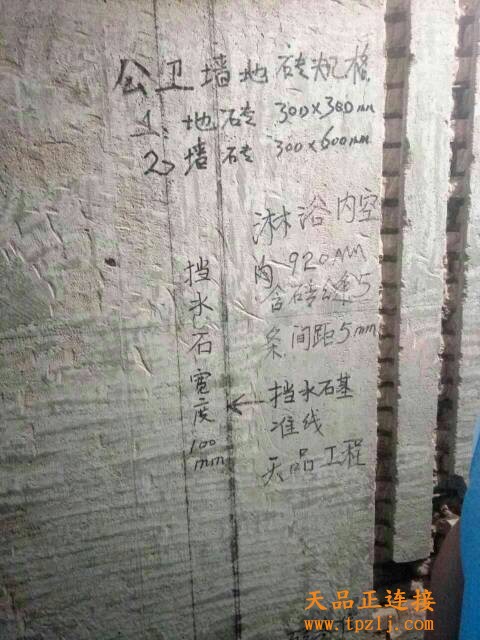 公卫墙地砖规格
1、地砖 300×300mm
2、墙砖 300×600mm
淋浴内空
内920mm
含砖缝5
条间距5mm
挡水石宽度100mm
挡水石基
准线
天品工程
天品正连接
www.tpzlj.com